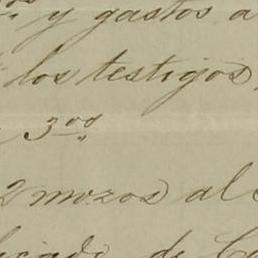 y gastos a
los testigos
3ºº
2 mozos al
de